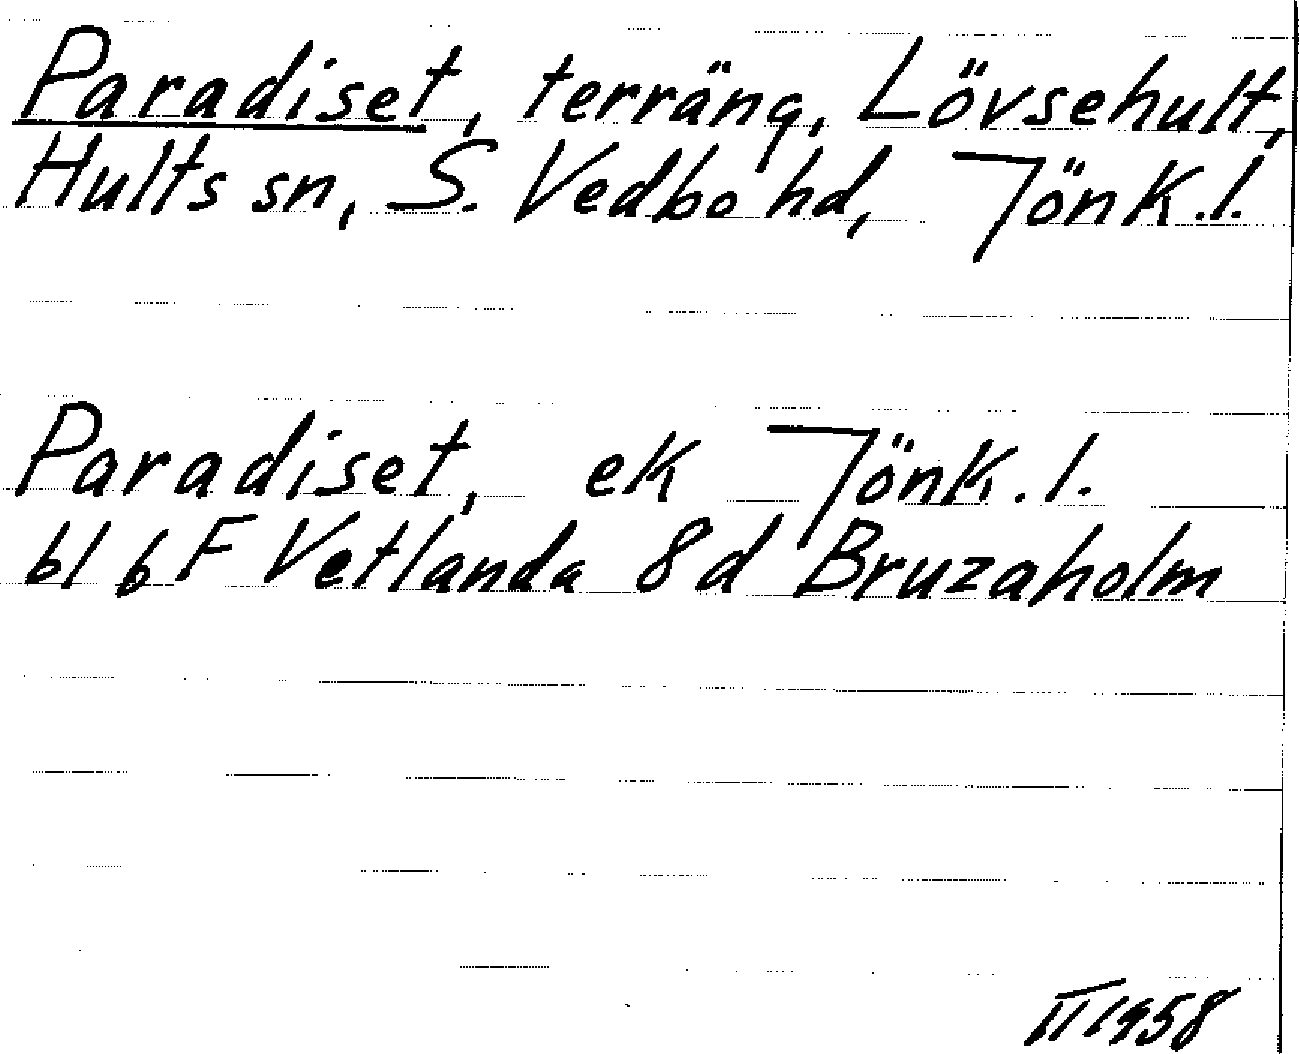 Paradiset, terräng, Lövsehult,
Hults sn, S. Vedbo hd, Jönk.l.
Paradiset, ek Jönk.l.
bl 6 F Vetlanda 8d Bruzaholm
II 1958